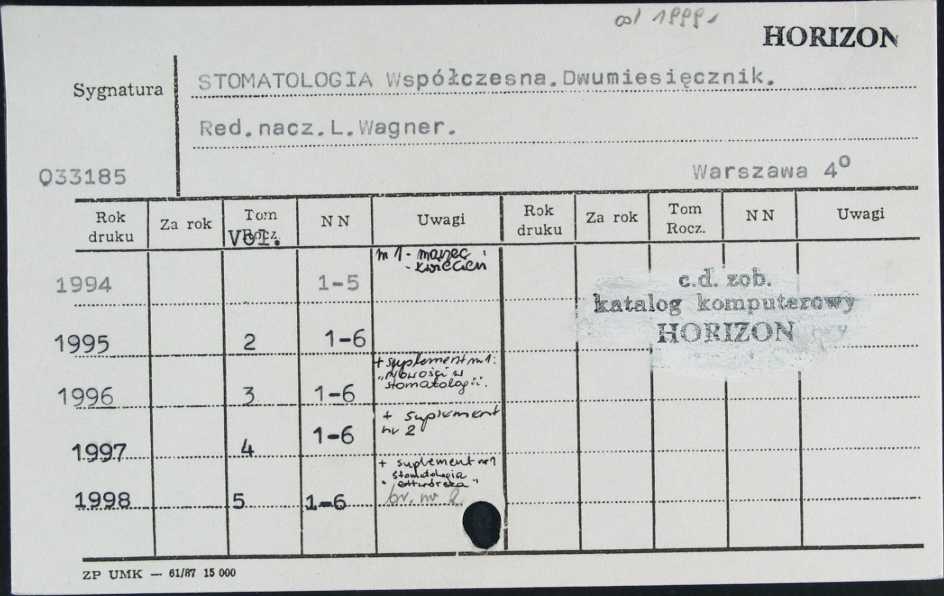 od 1999r
HORIZON
Sygnatura
STOMATOLOGIA Współczesna.Dwumiesięcznik.
Red.nacz.L.Wagner.
Q33185
Warszawa 4°
Rok druku Za rok Tom Rocz. N N Uwagi Rok druku Za rok Tom Rocz. N N Uwagi
Vol.
1994 1-5 nr 1 - marzec
- kwiecień
c.d. zob.
katalog komputerowy
HORIZON
1995 2 1-6
1996 3 1-6 + suplement nr 1:
"Nowości w
stomatologii".
1997 4 1-6 + suplement
nr 2
1998 5 1-6 + suplement nr 1
stomatologia
br. nr 2
ZP UMK — 61/87 15 000